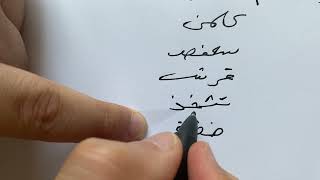 كلمن
سعفص
قرشت
ثخذ